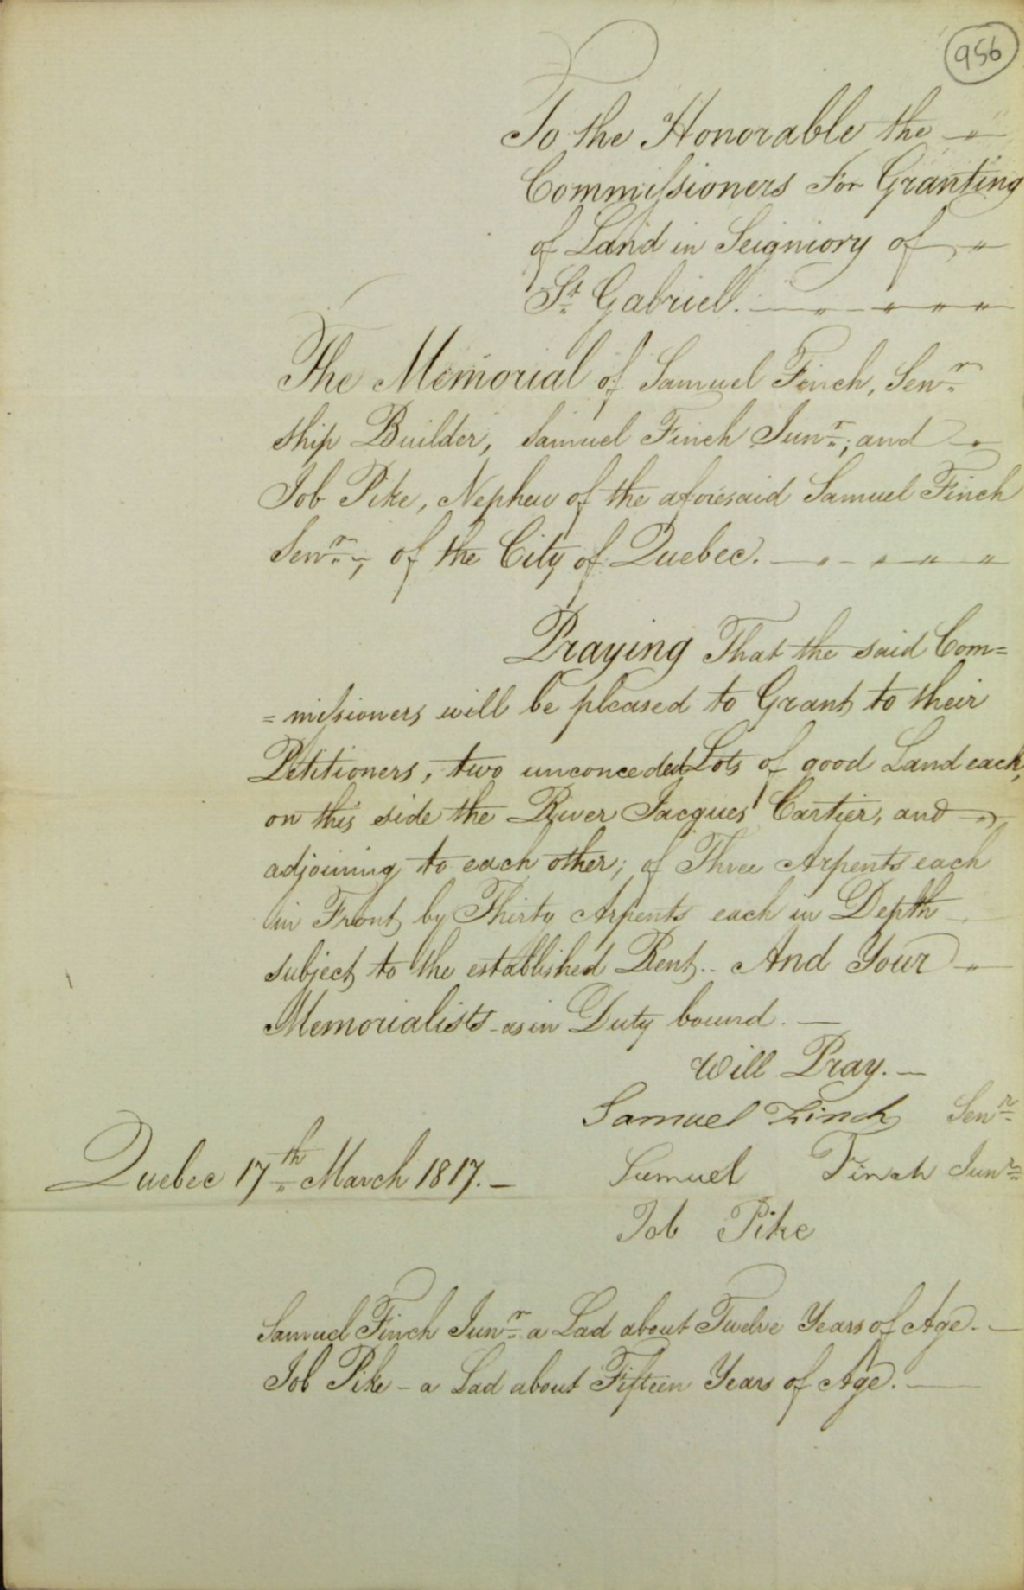 956
To the Honorable the
Commissioners For Granting
of Land in Seigniory of
St. Gabriell.
The Memorial of Samuel Finch, Senr.
ship Builder, Samuel Finch Junr.; and
Job Pike, Nephew of the aforesaid Samuel Finch
Senr., of the City of Quebec.
Praying That the said Com=
=missioners will be pleased to Grant to their
Petitioners, two unconceded Lots of good Land each,
on this side the River Jacques Cartier, and
adjoining to each other; of Three Arpents each
in Front by Thirty Arpents each in Depth
subject to the established Rent. And Your
Memorialists as in Duty bound.
Will Pray.
Samuel Finch Senr.
Quebec 17th March 1817.
Samuel Finch Junr.
Job Pike
Samuel Finch Junr. a Lad about Twelve Years of Age.
Job Pike - a Lad about Fifteen Years of Age.